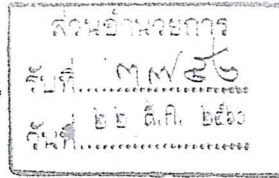 ส่วนอำนวยการ
รับที่ ๓๗๕๖
วันที่ ๒๒ ธ.ค. ๒๕๖๐